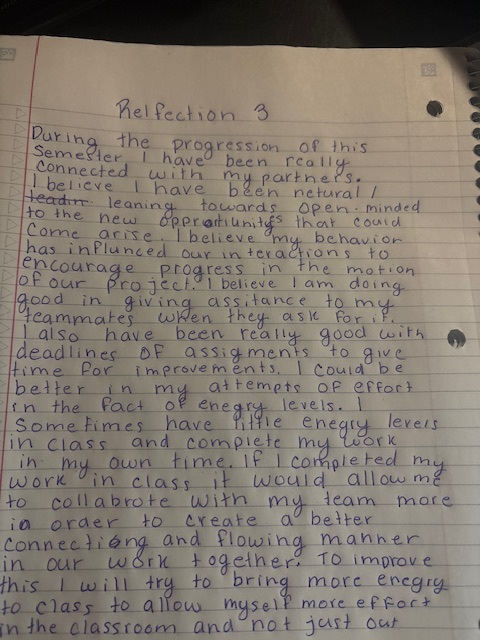 Relfection 3
During the progression of this
Semester I have been really
connected with my partners.
I believe I have been netural /
leadin leaning towards open-minded
to the new oppratiunitys that could
come arise. I believe my behavior
has influnced our interactions to
encourage progress in the motion
of our project. I believe I am doing
good in giving assitance to my
teammates when they ask for it.
I also have been really good with
deadlines of assigments to give
time for improvements. I could be
better in my attempts of effort
in the fact of enegry levels. I
Sometimes have little enegry levels
in class and complete my work
in my own time. If I completed my
work in class it would allow me
to collabrote with my team more
in order to create a better
connectiong and flowing manner
in our work together. To improve
this I will try to bring more enegry
to class to allow myself more effort
in the classroom and not just out